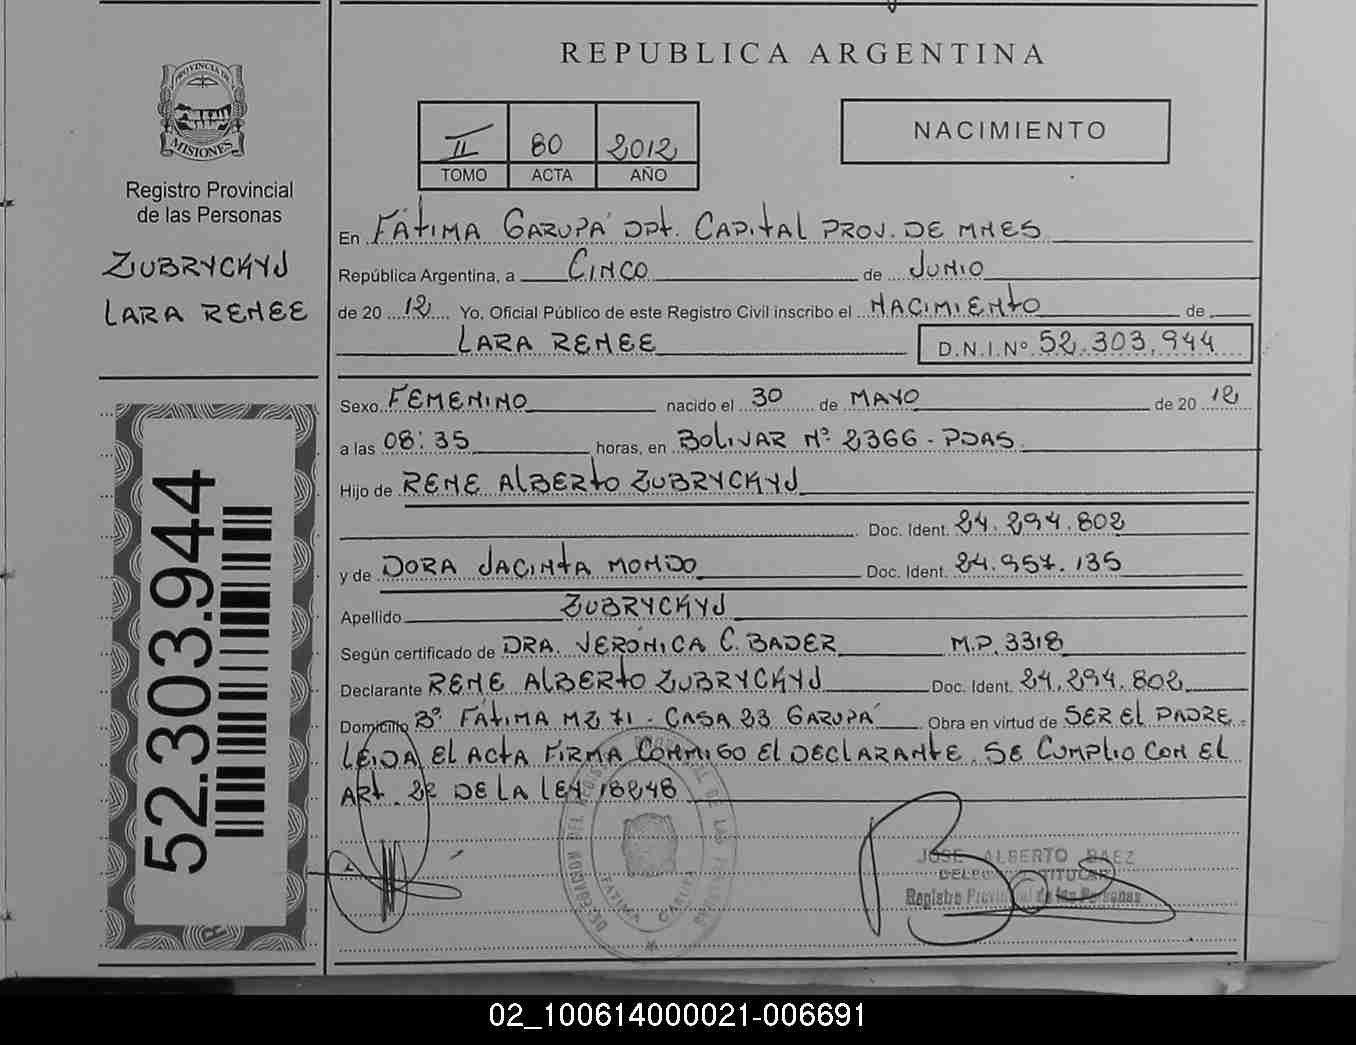 REPUBLICA ARGENTINA
PROVINCIA DE
MISIONES
Registro Provincial
de las Personas
ZUBRYCKYJ
LARA RENEE
52.303.944
II 80 2012
TOMO ACTA AÑO
NACIMIENTO
En FÁTIMA GARUPÁ DPT. CAPITAL PROV. DE MNES
República Argentina, a CINCO de JUNIO
de 20 12 Yo, Oficial Público de este Registro Civil inscribo el NACIMIENTO de
LARA RENEE D.N.I.Nº 52.303.944
Sexo FEMENINO nacido el 30 de MAYO de 20 12
a las 08:35 horas, en BOLIVAR Nº 2366 - PDAS.
Hijo de RENE ALBERTO ZUBRYCKYJ
Doc. Ident. 24.294.802
y de DORA JACINTA MONDO Doc. Ident. 24.957.135
Apellido ZUBRYCKYJ
Según certificado de DRA. VERÓNICA C. BADER M.P. 3318
Declarante RENE ALBERTO ZUBRYCKYJ Doc. Ident. 24.294.802
Domicilio Bº FÁTIMA MZ 71 - CASA 23 GARUPÁ Obra en virtud de SER EL PADRE -
LEIDA EL ACTA FIRMA CONMIGO EL DECLARANTE. SE CUMPLIO CON EL
ART. 22 DE LA LEY 18248
FATIMA GARUPA
JOSE ALBERTO BAEZ
TITULAR
Registro Provincial de las Personas
02_100614000021-006691